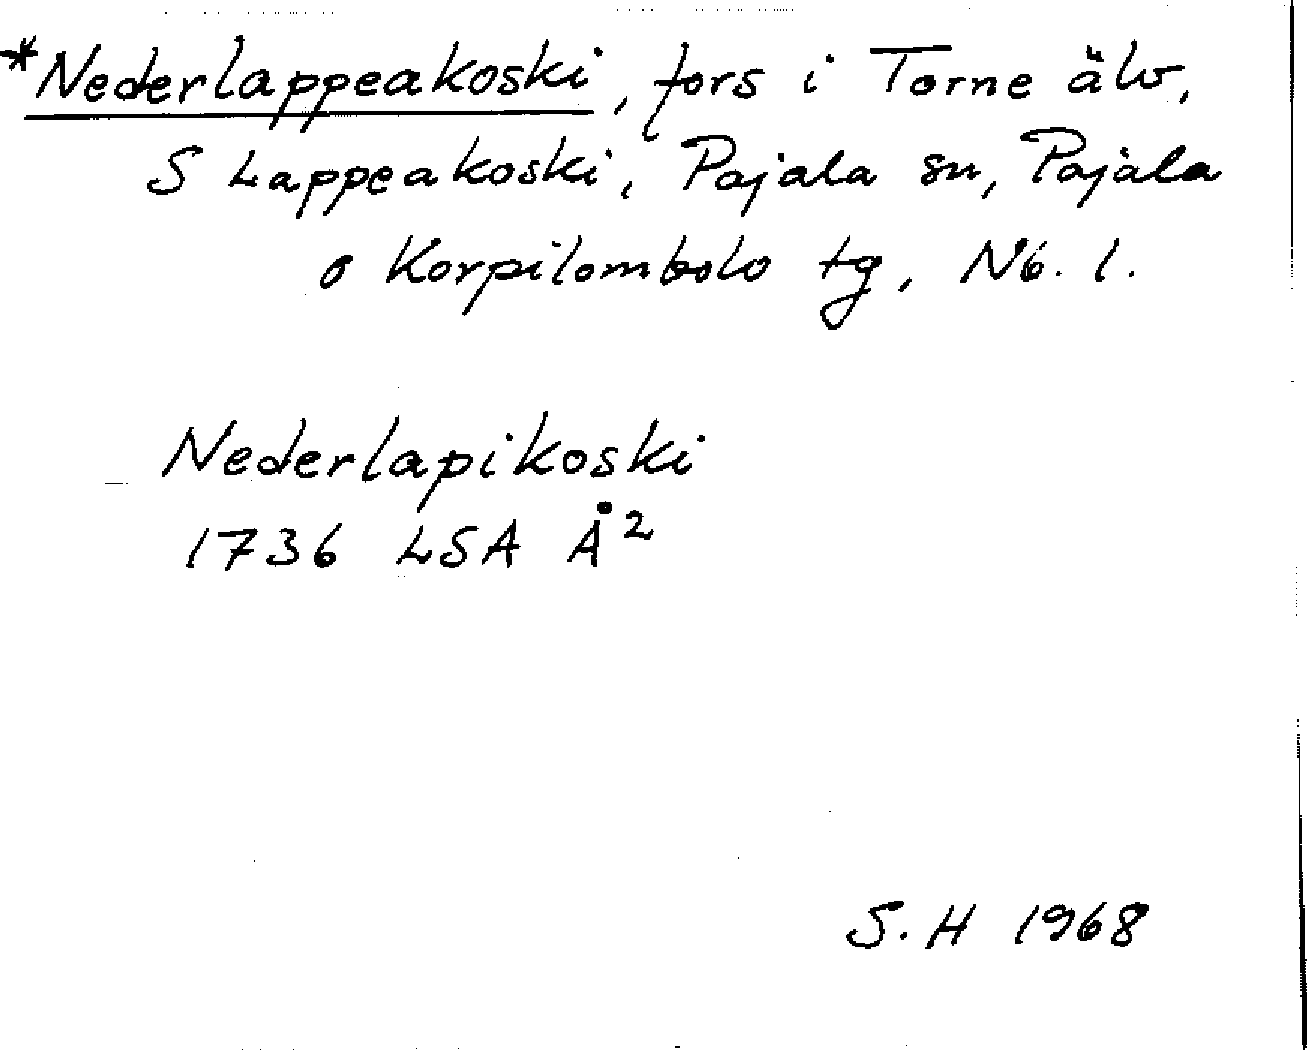 *Nederlappeakoski, fors i Torne älv,
S Lappeakoski, Pajala sn, Pajala
o Korpilombolo tg, Nb. l.
Nederlapikoski
1736 LSA Å²
S. H 1968